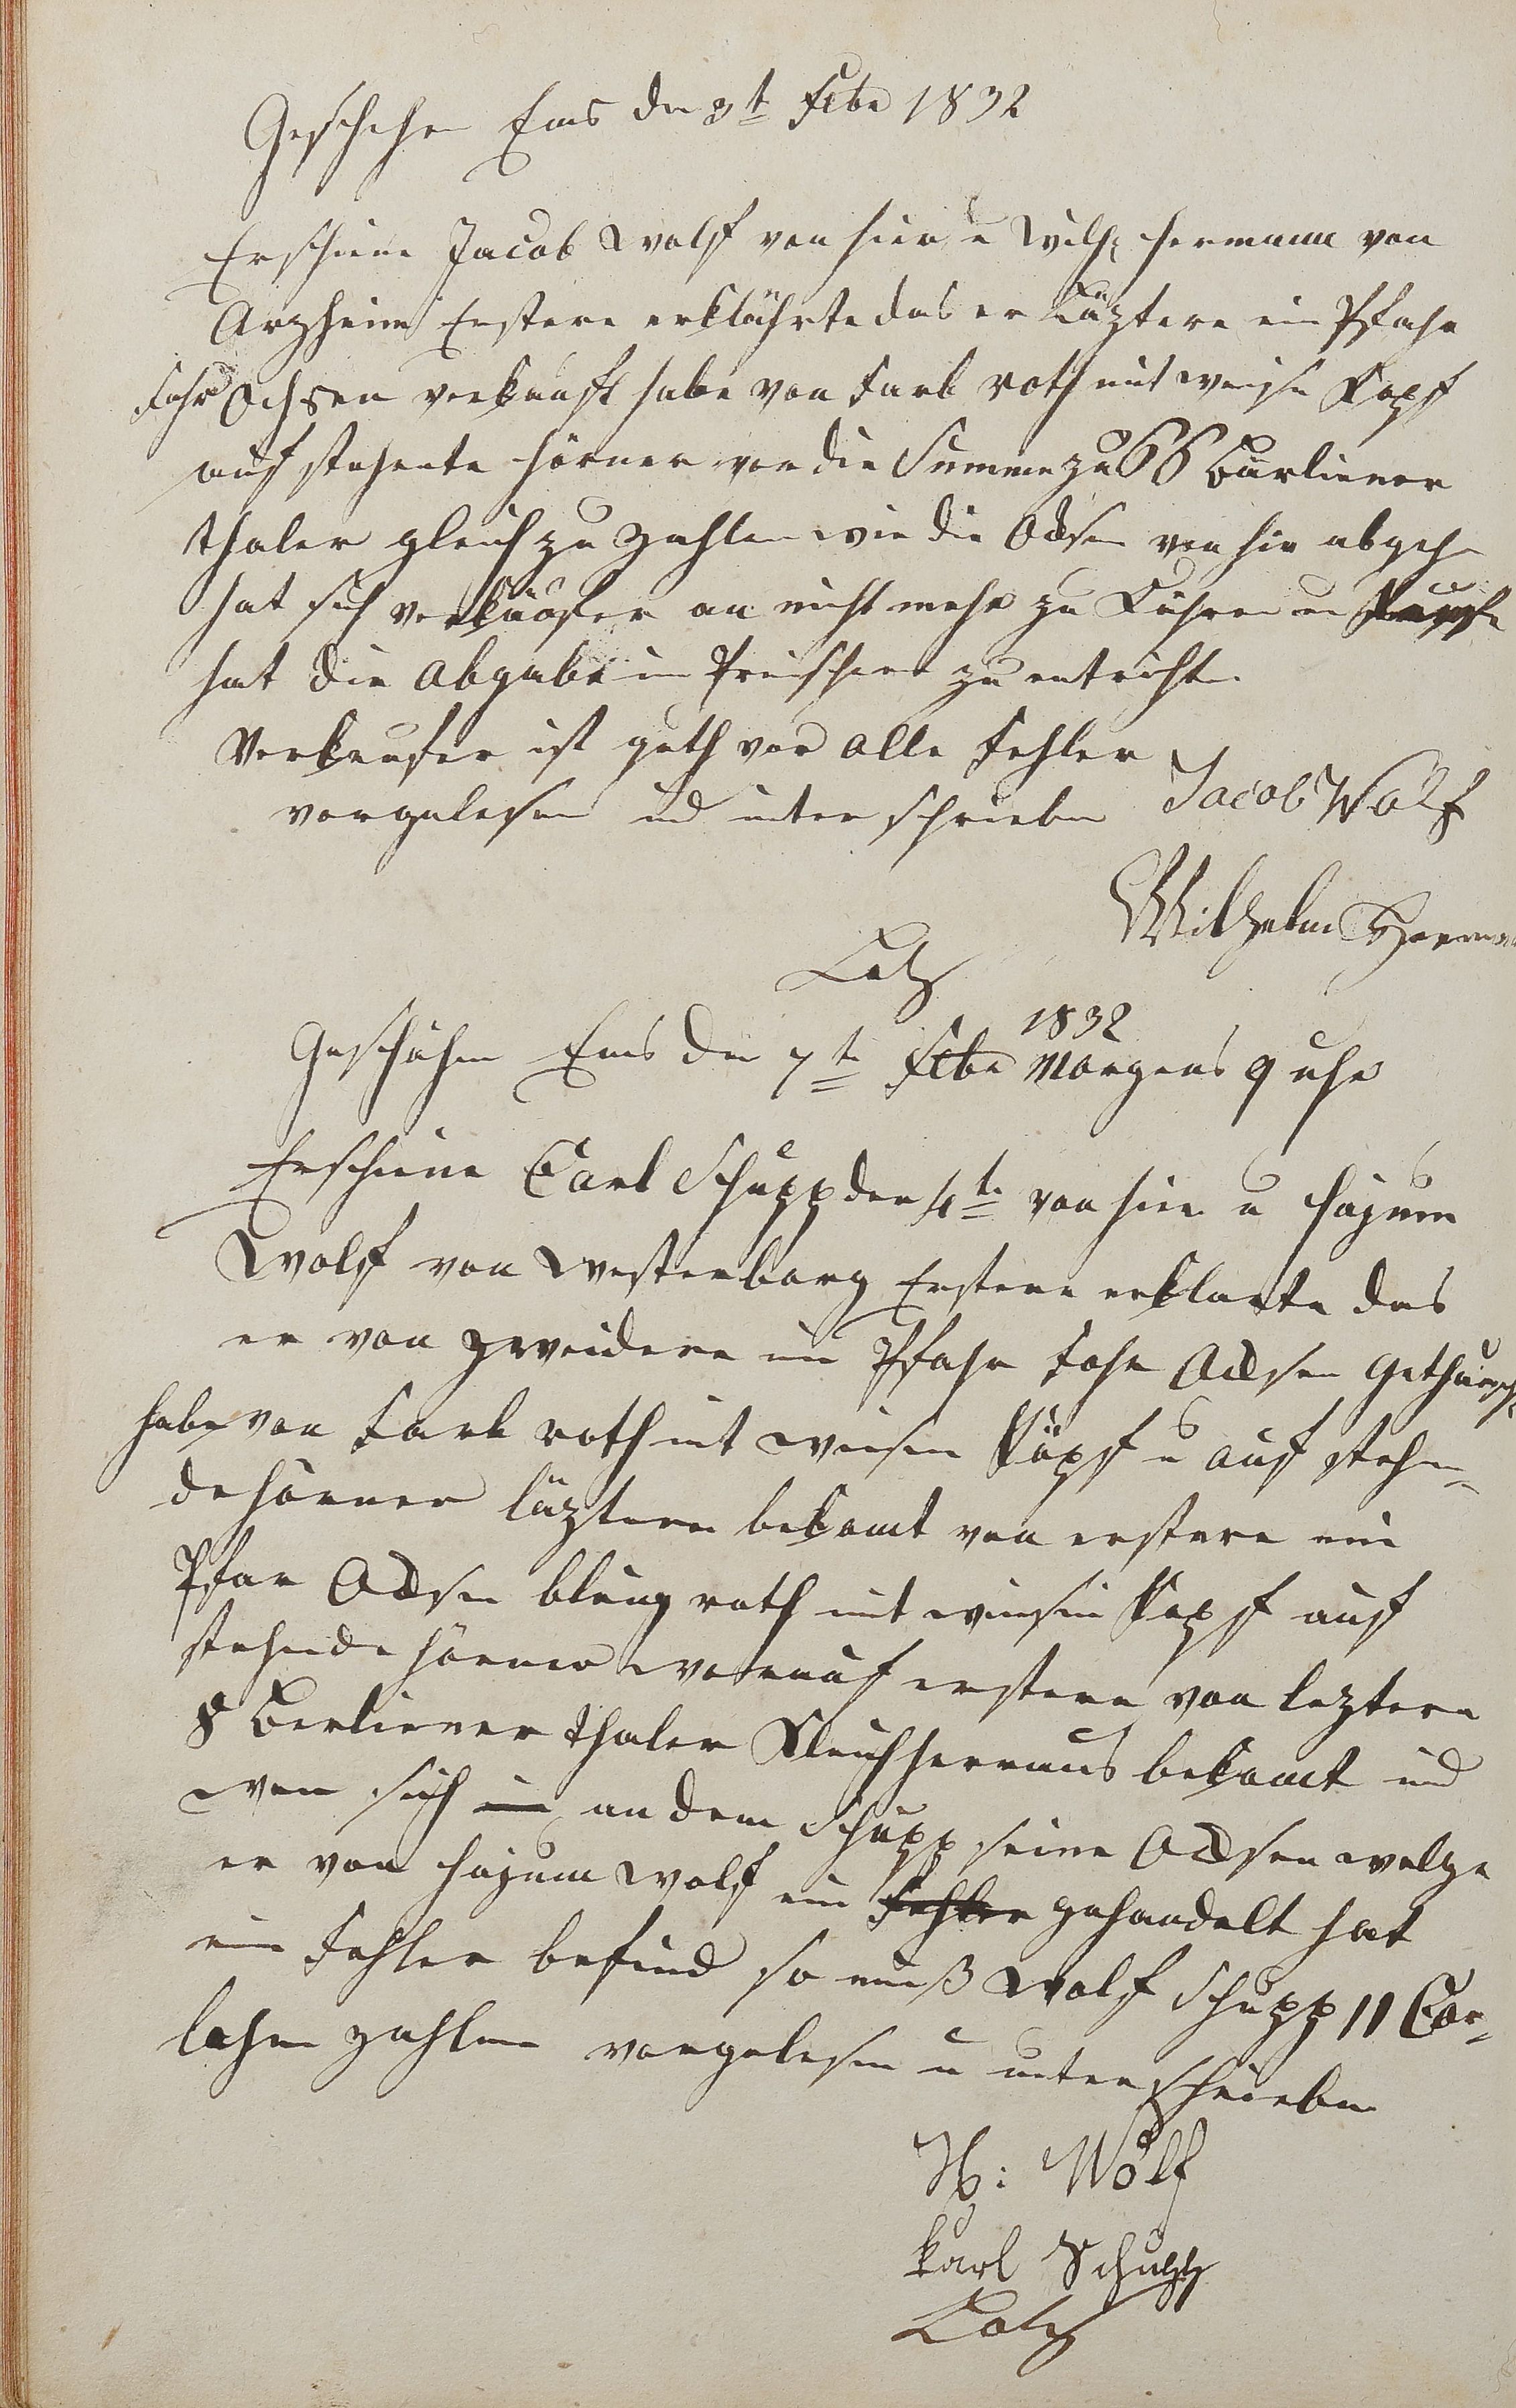 Geschehen Ems den 3t Febr 1832
Erschiene Jacob Wolf von hier u Wilh Hermann von
Arzheim Erstere erklährte das er Läztere ein Pfahr
Fahr Ochsen verkauft habe von Farb roth mit weisse Kopf
auf stehente Hörner vor die Summe zu 66 Barliener
thaler gleich zu zahlen wie die Ocksen von hir abgehn
hat sich verkäufer an nicht mehr zu Kühren un
hat die Abgabe im Preischen zu entrichten
Verkeufer ist guth vor alle Fehler
vorgelesen und unter schrieben Jacob Wolf
Wilhelm Herman
Geschähen Ems den 7te Febr 1832 Morgens 9 uhr
Erschiene Carl Schupp der 4te von hier u Hajum
Wolf von Westerburg Erstere erklarte das
er von zweidere ein Pfahr Fahr Ocksen gethauscht
habe von Farb roth mit weisen Köpf u auf stehen¬
de Hörner läztere bekomt von erstere ein
Pfar Ocksen bläng roth mit weisen Kopf auf
stehende Hörner worauf erstere von leztere
8 Berliener thaler Kleich herraus bekomt und
wen sich an dem Schupp seine Ocksen welge
er von Hajum Wolf ein Fehler gehandelt hat
ein Fehler befind so muß Wolf Schupp 11 Car¬
lohin zahlen vorgelesen u unter schrieben
H: Wolf
Karl Schupp